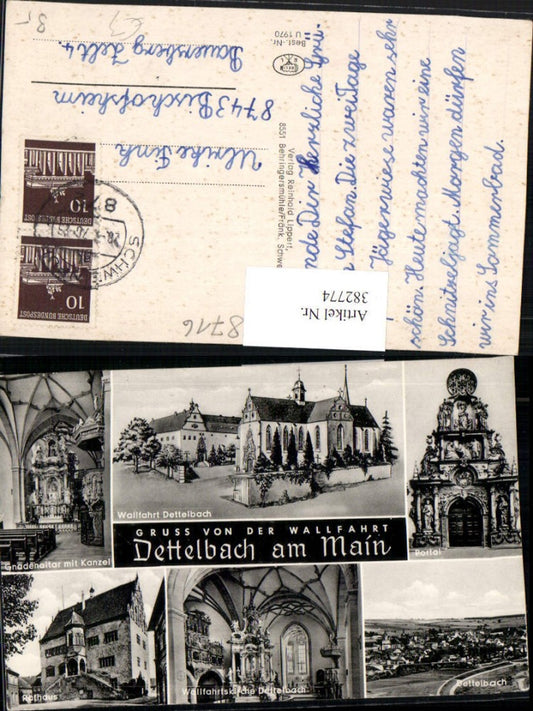 sende Dir Herzliche Grü-
Stefan. Die zwei Tage
Jägerwiese waren sehr
schön. Heute machten wir eine
Schnitzeljagd. Morgen dürfen
wir ins Sommerbad.
Verlag Reinhold Lippert,
8551 Behringersmühle/Fränk. Schweiz
Best.-Nr.
U 1970
Ulrike Fink
8743 Bischofsheim
Bauersberg Zelt 4.
10
DEUTSCHE BUNDESPOST
10
DEUTSCHE BUNDESPOST
8716
Artikel Nr.
382774
8716
Gnadenaltar mit Kanzel
Wallfahrt Dettelbach
Portal
GRUSS VON DER WALLFAHRT
Dettelbach am Main
Rathaus
Wallfahrtskirche Dettelbach
Dettelbach